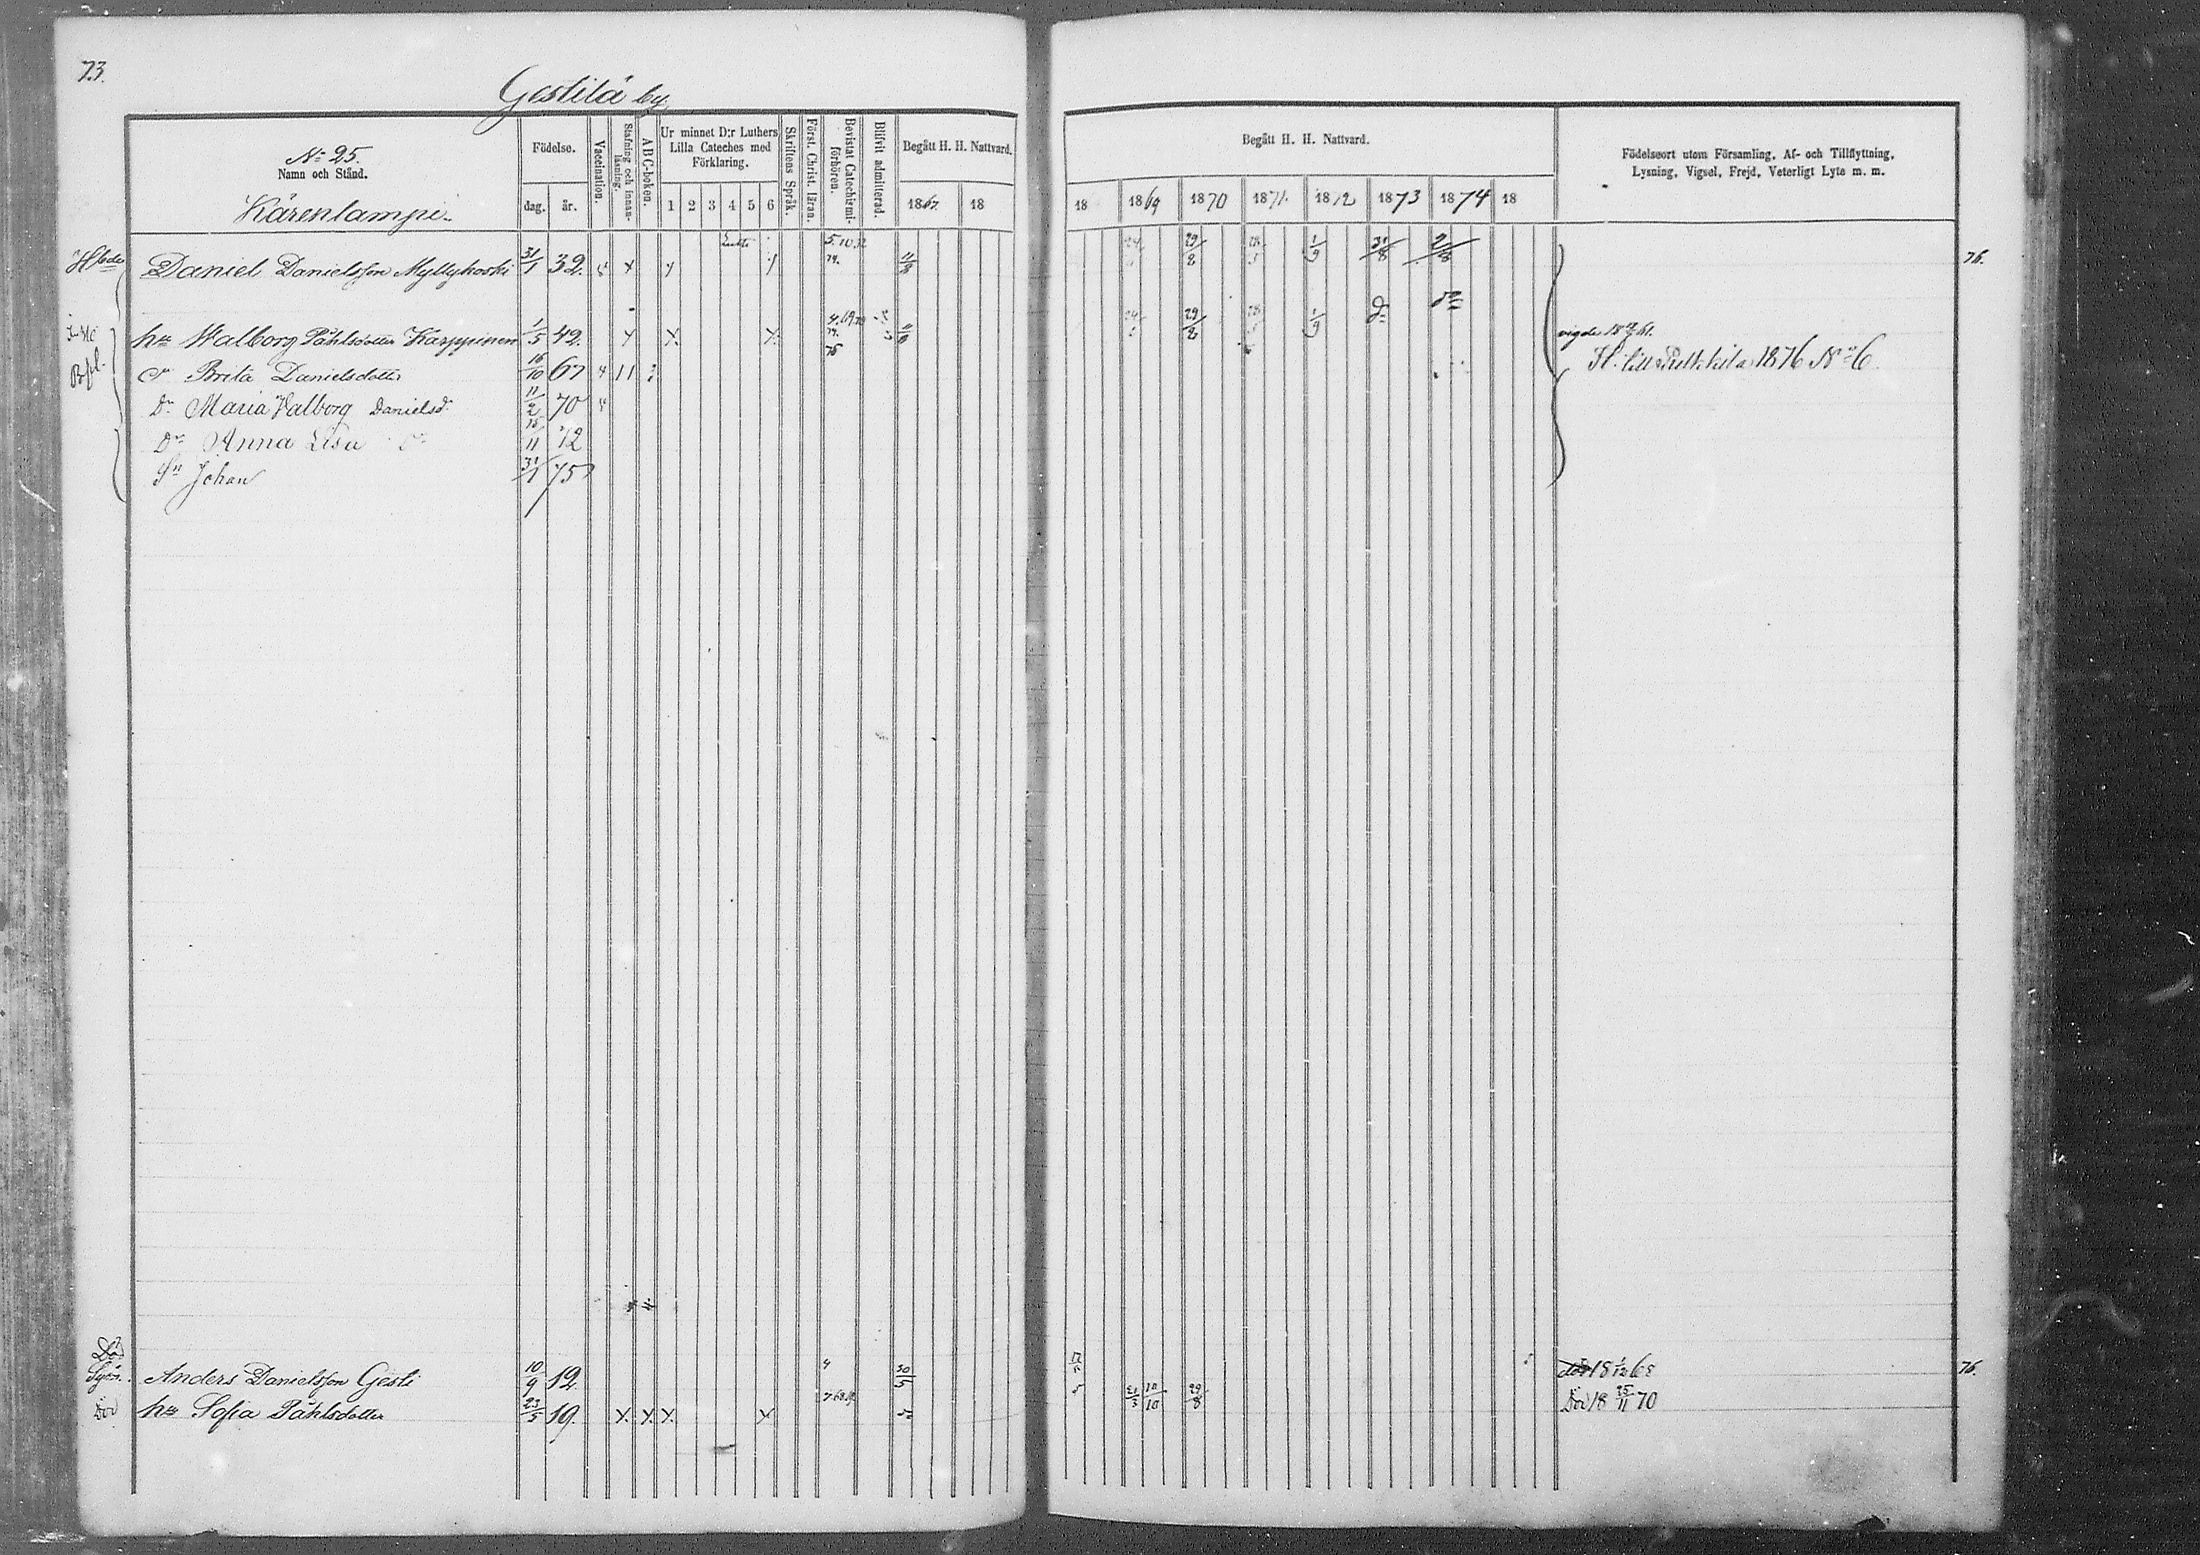 73.
Gestilä by
No 25.
Namn och Stånd.
Kärenlampi
Födelse.
dag. år.
Vaccination.
Stafning och innan-läsning.
ABC-boken.
Ur minnet D:r Luthers
Lilla Cateches med
Förklaring.
1 2 3 4 5 6
Skriftens Språk.
Först. Christ. läran.
Bevistat Catechismi-förhören.
Blifvit admitterad.
Begått H. H. Nattvard.
1867 18
Begått H. H. Nattvard.
18 1869 1870 1871 1872 1873 1874 18
Födelseort utom Församling, Af- och Tillflyttning,
Lysning, Vigsel, Frejd, Veterligt Lyte m. m.
Daniel Danielsson Myllykoski 31/1 32. 11/8 29/8 1/9 31/8 2/8 76.
hu Walborg Påhlsdotter Karppinen 1/5 42. 29/8 1/9 vigde
Dr Brita Danielsdotter 16/10 67 1876 No 6
Dr Maria Valborg Danielsd. 11/2 70
Dr Anna Lisa 15/11 72
Sn Johan 31/1 75
Anders Danielsson Gesti 10/9 12. 30/5 död 18 1/12 68 76.
Död hu Sofia Påhlsdotter 23/5 19. 21/3 10/10 29/8 Död 18 25/11 70